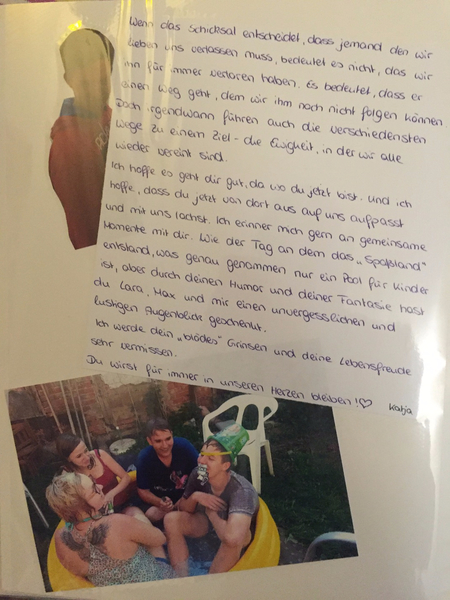 Wenn das Schicksal entscheidet, dass jemand den wir
lieben uns verlassen muss, bedeutet es nicht, das wir
ihn für immer verloren haben. Es bedeutet, dass er
einen Weg geht, dem wir ihm noch nicht folgen können
Doch irgendwann führen auch die verschiedensten
Wege zu einem Ziel - die Ewigkeit, in der wir alle
wieder vereint sind.
Ich hoffe es geht dir gut, da wo du jetzt bist. und ich
hoffe, dass du jetzt von dort aus auf uns aufpasst
und mit uns lachst. Ich erinner mich gern an gemeinsame
Momente mit dir. Wie der Tag an dem das „Spaßland"
entstand, was genau genommen nur ein Pool für Kinder
ist, aber durch deinen Humor und deiner Fantasie hast
du Lara, Max und mir einen unvergesslichen und
lustigen Augenblick geschenkt.
Ich werde dein „blödes" Grinsen und deine Lebensfreude
sehr vermissen.
Du wirst für immer in unseren Herzen bleiben!♡ Katja